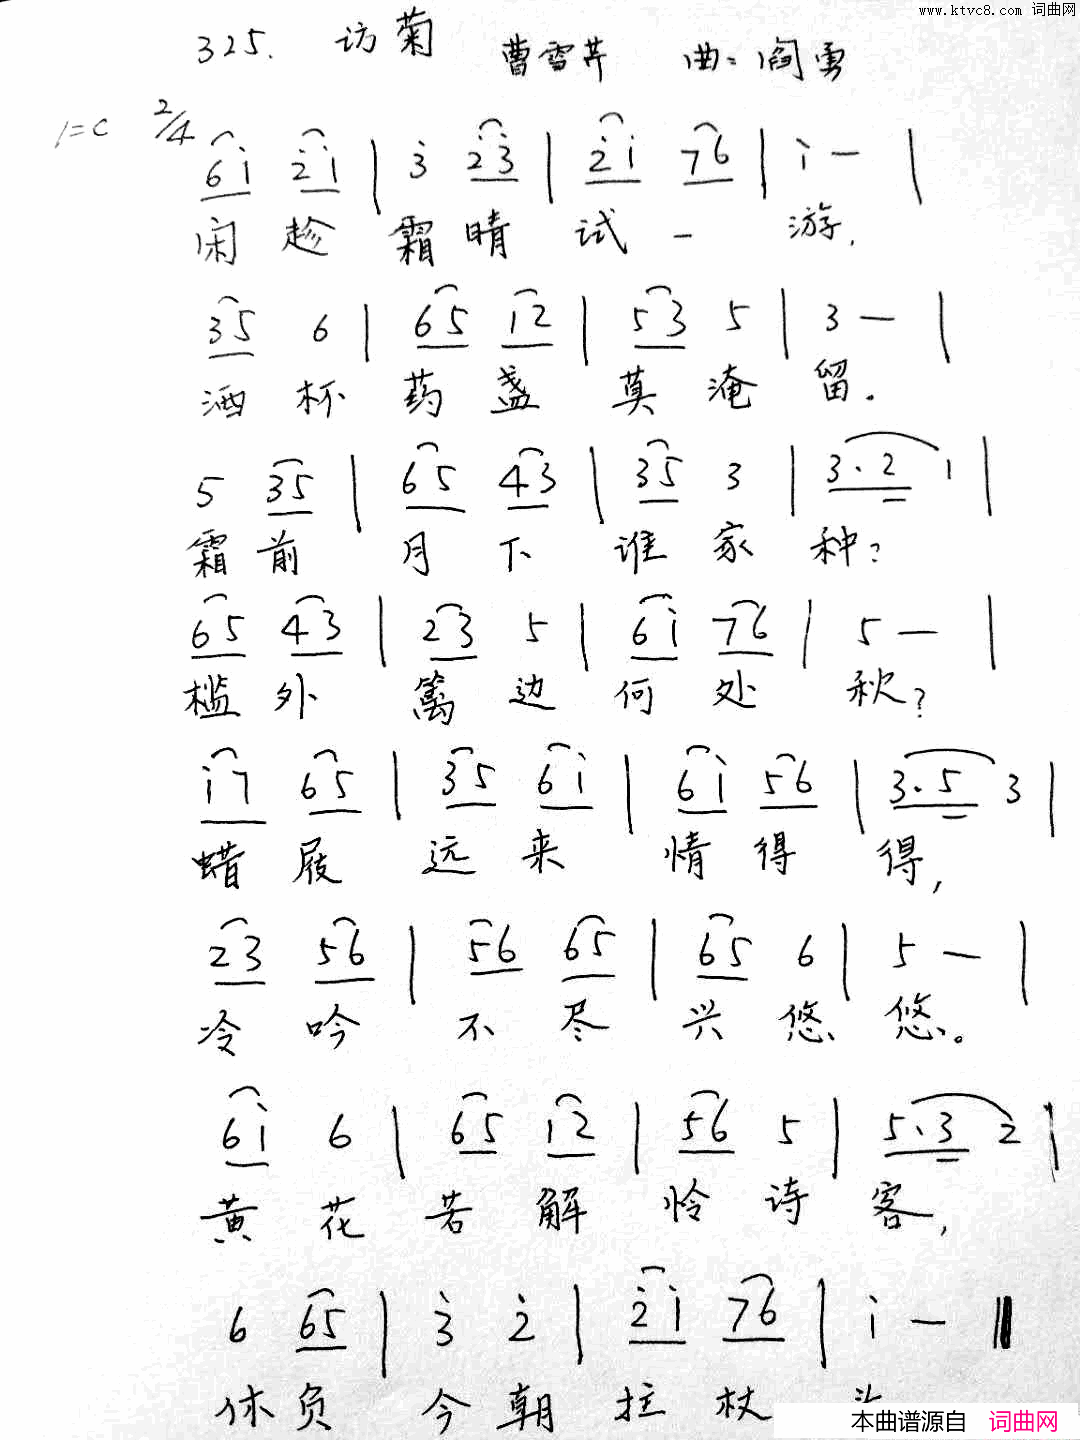 www.ktvc8.com 词曲网
325. 访菊 曹雪芹 曲:阎勇
1=C 2/4
6i 2̇i | 3̇ 2̇3̇ | 2̇i 76 | i — |
闲 趁 霜 晴 试 一 游,
35 6 | 65 12 | 53 5 | 3 — |
酒 杯 药 盏 莫 淹 留。
5 35 | 65 43 | 35 3 | 3.2 1 |
霜 前 月 下 谁 家 种?
65 43 | 23 5 | 6i 76 | 5 — |
槛 外 篱 边 何 处 秋?
i7 65 | 35 6i | 6i 56 | 3.5 3 |
蜡 屐 远 来 情 得 得,
23 56 | 56 65 | 65 6 | 5 — |
冷 吟 不 尽 兴 悠 悠。
6i 6 | 65 12 | 56 5 | 5.3 2 |
黄 花 若 解 怜 诗 客,
6 65 | 3̇ 2̇ | 2̇i 76 | i — ‖
休 负 今 朝 拄 杖
本曲谱源自 词曲网